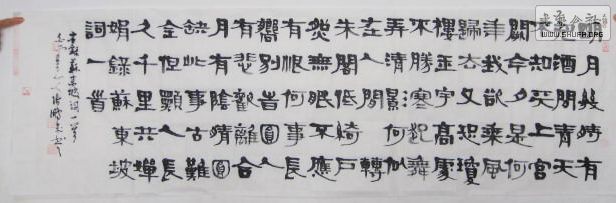 明月幾時有
把酒問青天
不知天上宮
闕今夕是何
年我欲乘風
歸去又恐瓊
樓玉宇高處
不勝寒起舞
弄清影何似
在人間轉
朱閣低綺戶
照無眠不應
有恨何事長
嚮別時圓人
有悲歡離合
月有陰晴圓
缺此事古難
全但願人長
久千里共嬋
娟錄蘇東坡
詞一首
蘇東坡詞一首
WWW.SHUFA.ORG